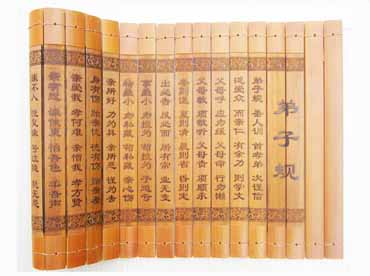 弟子规
弟子规 圣人训 首孝弟 次谨信
泛爱众 而亲仁 有余力 则学文
父母呼 应勿缓 父母命 行勿懒
父母教 须敬听 父母责 须顺承
冬则温 夏则凊 晨则省 昏则定
出必告 反必面 居有常 业无变
事虽小 勿擅为 苟擅为 子道亏
物虽小 勿私藏 苟私藏 亲心伤
亲所好 力为具 亲所恶 谨为去
身有伤 贻亲忧 德有伤 贻亲羞
亲爱我 孝何难 亲憎我 孝方贤
亲有过 谏使更 怡吾色 柔吾声
谏不入 悦复谏 号泣随 挞无怨